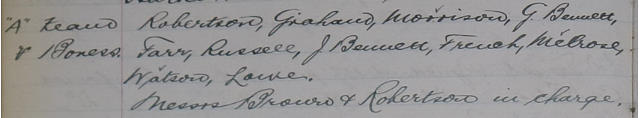 "A" Team Robertson, Graham, Morrison, G. Bennett,
v Boness. Farr, Russell, J Bennett, French, Melrose,
Watson, Lowe.
Messrs Brown & Robertson in charge.